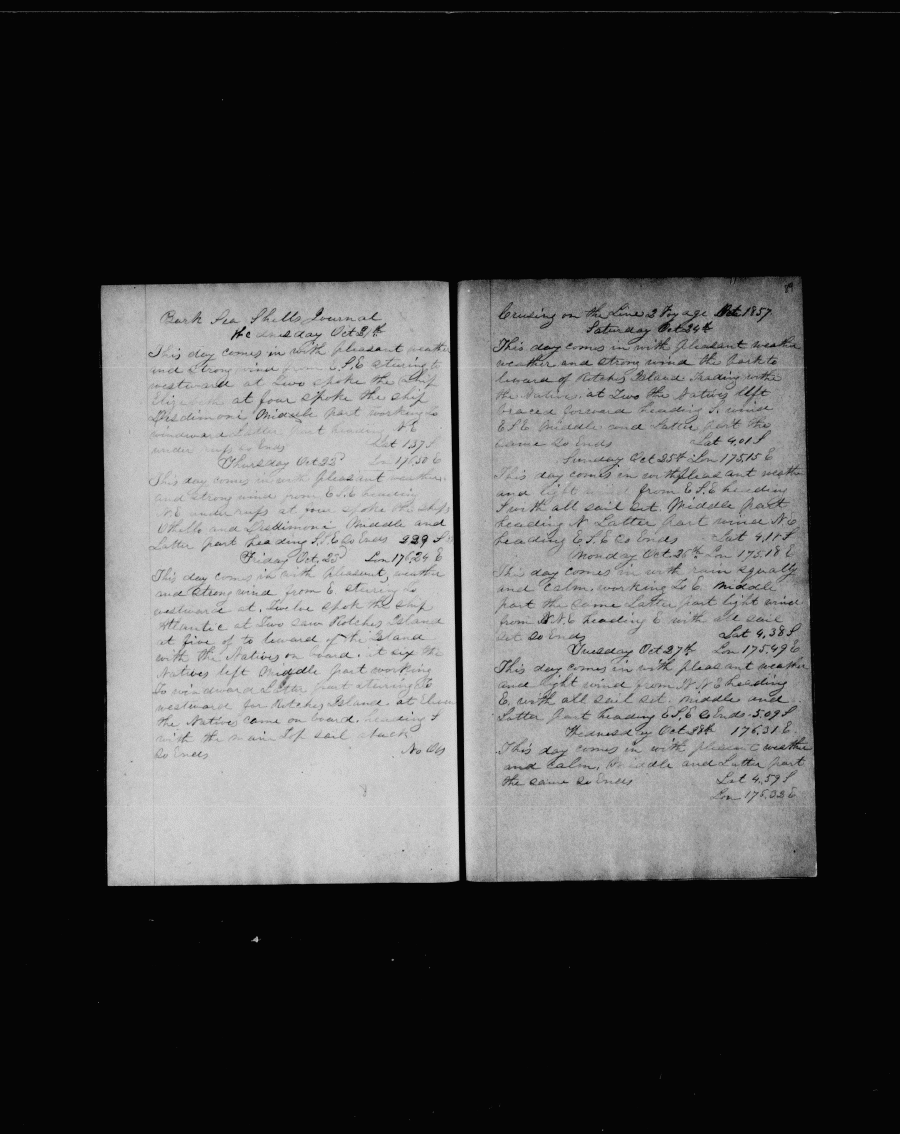 Bark Sea Shells Journal
Wednesday Oct 21th
This day comes in with pleasant weather
and strong wind from E.S.E stering to
westward at Two spoke the ship
Elizabeth at four spoke the ship
Disdimoni Middle part working to
windward Latter part heading N.E
under rufs so Ends Lat 1.37 S
Thursday Oct 22d Lon 176.50 E
This day comes in with pleasant weather
and strong wind from E.S.E heading
N.E under rufs at four spoke the ships
Othello and Disdimoni Middle and
Latter part heading S.S.E So Ends 2.29 S
Friday Oct. 23d Lon 176.24 E
This day comes in with pleasant weather
and strong wind from E. stering to
westward at. Twelve spok the ship
Atlantic at Two saw Rotches Island
at five of to leward of the Island
with the Natives on board. at six the
Natives left Middle part working
to windward Latter part sterring
westward for Rotches Island at Eleven
the Natives came on board. heading
with the main Top sail aback
So Ends No Obs
Crusing on the Line 2 Voyage Oct 1857
Saturday Oct 24th
This day comes in with pleasant weather
weather and strong wind the bark to
leward of Rotches Island trading withe
the Natives. at Two the Natives left
braced forward heading S. wind
E.S.E. Middle and Latter part the
same So Ends Lat 4.01 S
Sunday Oct 25th Lon 175.15 E
This day comes in with pleasant weather
and light wind from E.S.E heading
S with all sail set. Middle part
heading N Latter part wind N.E
heading E.S.E So Ends Lat 4.11 S
Monday Oct 26th Lon 175.18 E
This day comes in with rain squally
and calm, working to E. Middle
part the same Latter part light wind
from N.N.E heading E with all sail
Set So Ends Lat 4.38 S
Tuesday Oct 27th Lon 175.49 E
This day comes in with pleasant weather
and light wind from N.N.E heading
E. with all sail set. Middle and
Latter part heading E.S.E So Ends. 5.09 S
Wednesday Oct 28th 176.31 E.
This day comes in with pleasant weather
and calm. Middle and Latter part
the same So Ends Lat 4.59 S
Lon 176.32 E